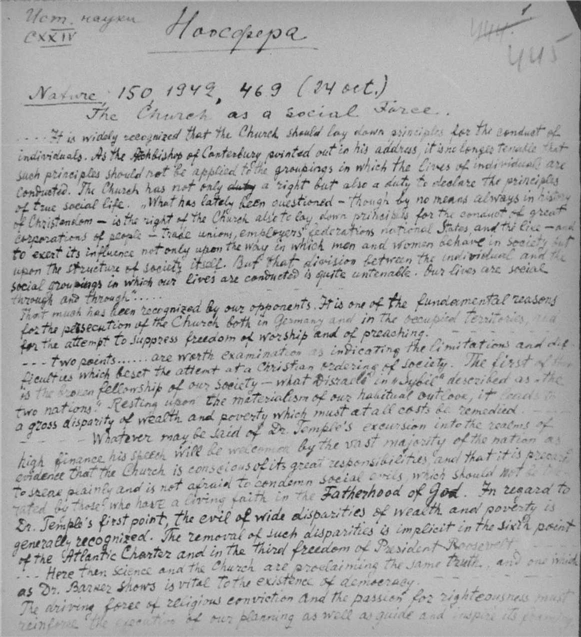 Ист. науки
CXXIV
Ноосфера
1
444.
445
Nature 150 1942, 469 (24 oct.)
The Church as a Social Force.
....It is widely recognized that the Church should lay down principles for the conduct of
individuals. As the Archbishop of Canterbury pointed out in his address, it is no longer tenable that
such principles should not be applied to the groupings in which the lives of individuals are
conducted. The Church has not only a right but also a duty to declare the principles
of true social life. „What has lately been questioned – though by no means always in history
of Christendom – is the right of the Church also to lay down principles for the conduct of great
corporations of people – trade union, employers' federations national States, and the like – and
to exert its influence not only upon the way in which men and women behave in society but
upon the structure of society itself. But that division between the individual and the
social groupings in which our lives are conducted is quite untenable. Our lives are social
through and through"....
That much has been recognized by our opponents. It is one of the fundamental reasons
for the persecution of the Church both in Germany and in the occupied territories, and
for the attempt to suppress freedom of worship and of preaching.
.... two points...... are worth examination as indicating the limitations and dif-
ficulties which beset the attent at a Christian ordering of society. The first of
is the broken fellowship of our society – what Disraeli in „Sybil" described as „the
two nations." Resting upon the materialism of our habitual outlook, it leads to
a gross disparity of wealth and poverty which must at all costs be remedied
.... Whatever may be said of Dr. Temple's excursion into the realms of
high finance, his speech will be welcomed by the vast majority of the nation as
evidence that the Church is conscious of its great responsibilities, and that it is
to speak plainly and is not afraid to condemn social evils, which should not be
by those who have a living faith in the Fatherhood of God. In regard to
Dr. Temple's first point, the evil of wide disparities of wealth and poverty is
generally recognized. The removal of such disparities is implicit in the sixth point
of the Atlantic Charter and in the third freedom of President Roosevelt.
.... Here then science and the Church are proclaiming the same truth, and one which
as Dr. Barker shows is vital to the existence of democracy.
The driving force of religious conviction and the passion for righteousness must
reinforce the execution of our planning as well as guide and inspire its